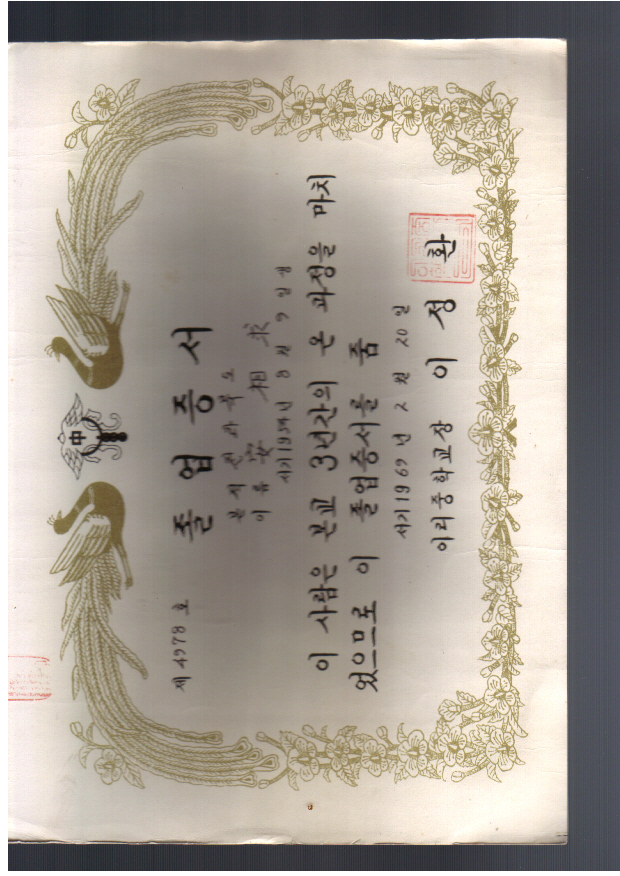 中
제 4978 호
졸업증서
본적 전라북도
이름 安 相 求
서기 1954년 8월 9일생
이 사람은 본교 3년간의 온 과정을 마치
었으므로 이 졸업증서를 줌
서기 1969년 2월 20일
이리중학교장 이정환